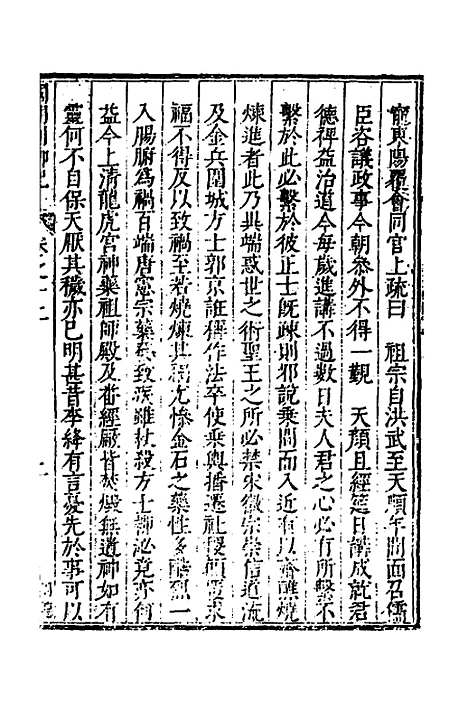 寵東陽屠會同官上疏曰　祖宗自洪武至天順年間面召儒
臣咨議政事今朝參外不得一覲　天顏且經筵日講成就君
德裨益治道今每歲進講不過數日夫人君之心必有所繫不
繫於此必繫於彼正士既疎則邪說乘間而入近有以齋醮燒
煉進者此乃異端惑世之術聖王之所必禁宋徽宗崇信道流
及金兵圍城方士郭京誑稱作法卒使乘輿播遷社稷傾覆求
福不得反以致禍至若燒煉其禍尤慘金石之藥性多酷烈一
入腸腑為禍百端唐憲宗藥發致疾雖杖殺方士柳泌竟亦何
益今上清龍虎宮神樂祖師殿及番經廠皆焚燬無遺神如有
靈何不自保天厭其穢亦已明甚昔李絳有言憂先於事可以